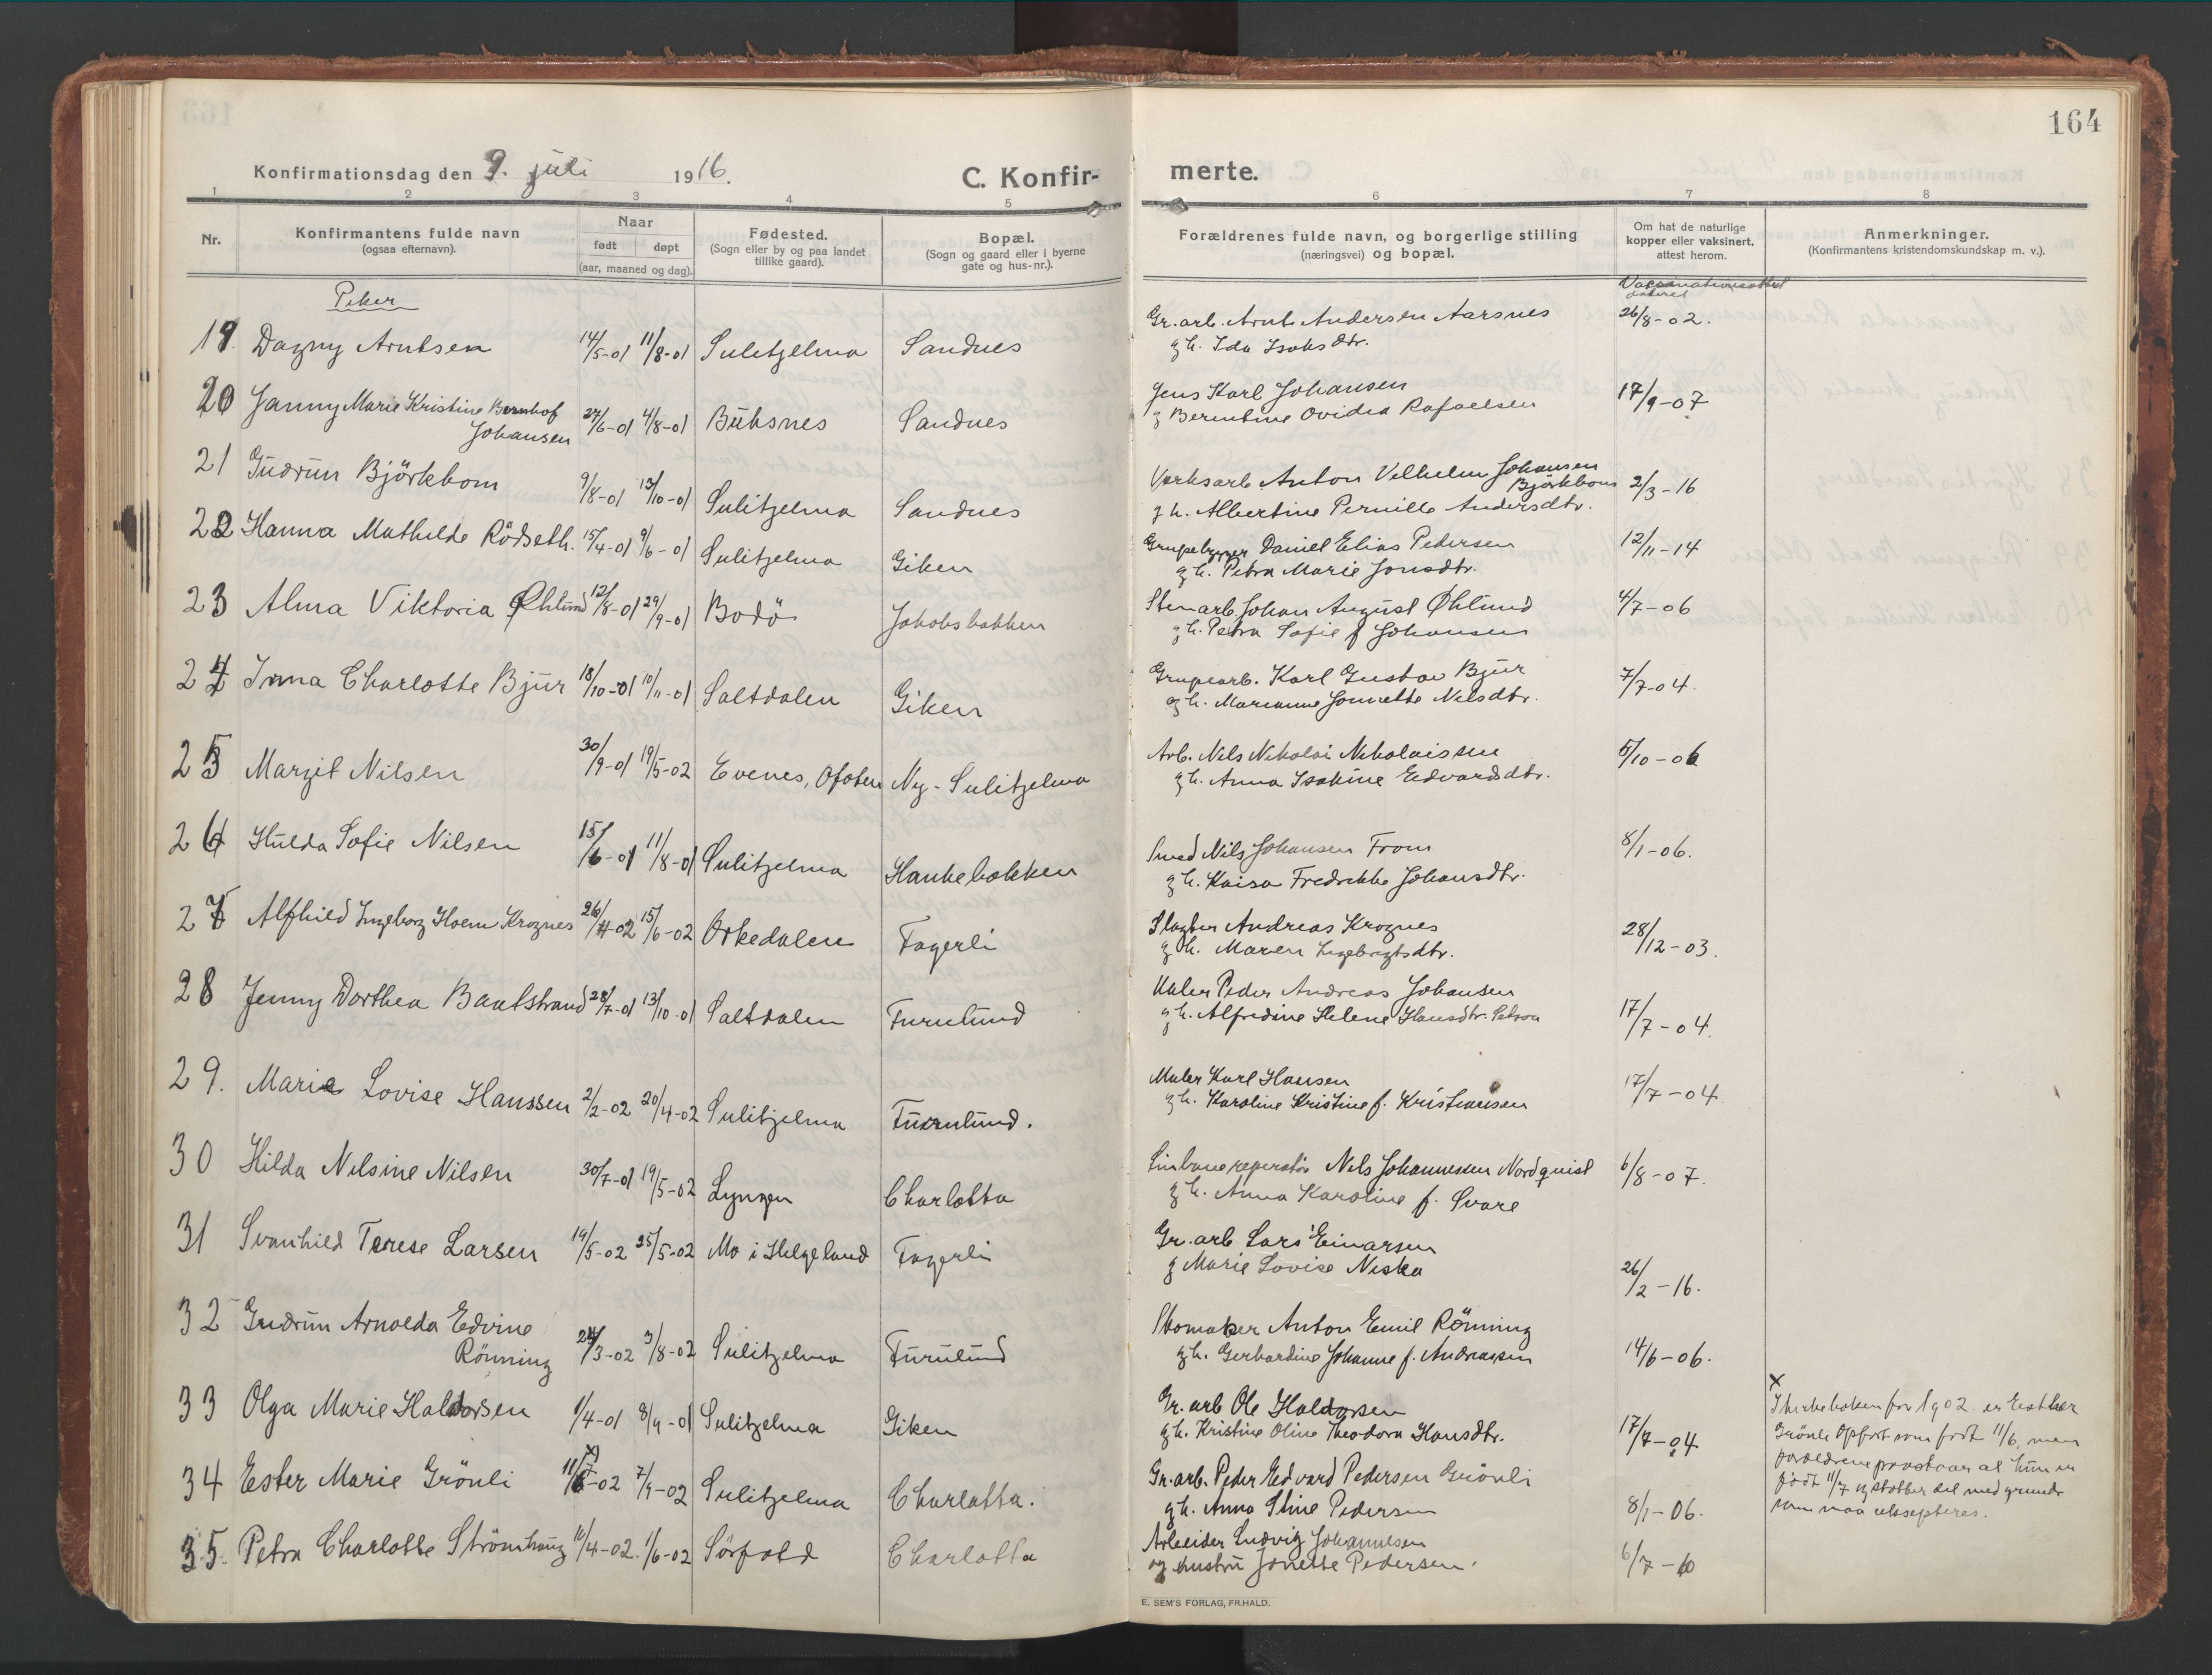 164
Konfirmationsdag den 9. juli 1916.
C. Konfir-
merte.
1 2 3 4 5 6 7 8
Nr.
Konfirmantens fulde navn
(ogsaa efternavn).
Naar
født døpt
(aar, maaned og dag).
Fødested.
(Sogn eller by og paa landet
tillike gaard).
Bopæl.
(Sogn og gaard eller i byerne
gate og hus-nr.).
Forældrenes fulde navn, og borgerlige stilling
(næringsvei) og bopæl.
Om hat de naturlige
kopper eller vaksinert,
attest herom.
Anmerkninger.
(Konfirmantens kristendomskundskap m. v.).
Piker
19. Dagny Arntsen 14/5-01 11/8-01 Sulitjelma Sandnes Gr. arb. Arnt Andersen Aarsnes 26/8-02.
g h. Ida Isaksdtr.
20 Jenny Marie Kristine Bernhof 27/6-01 4/8-01 Buksnes Sandnes Jens Karl Johansen 17/9-07
Johansen g Berentine Ovidia Rafaelsen
21 Gudrun Björkbom 9/8-01 13/10-01 Sulitjelma Sandnes Verksarb Anton Vilhelm Johansen 2/3-16
Björkbom
g h. Albertine Pernille Andersdtr.
22 Hanna Mathilde Rödseth. 15/4-01 9/6-01 Sulitjelma Giken Daniel Elias Pedersen 12/11-14
g h. Petra Marie Jonsdtr.
23 Alma Viktoria Øhlund 12/8-01 29/9-01 Bodö Jakobsbakken Stenarb Johan August Øhlund 4/7-06
g h. Petra Sofie f Johansen
24 Irma Charlotte Bjur 18/10-01 10/11-01 Saltdalen Giken Grupearb. Karl Gustav Bjur 7/7-04.
g h. Marianne Jonnette Nilsdtr.
25 Margit Nilsen 30/9-01 19/5-02 Evenes, Ofoten Ny-Sulitjelma Arb. Nils Nikolai Nikolaissen 5/10-06
g h. Anna Isakine Edvardsdtr.
26 Hulda Sofie Nilsen 15/6-01 11/8-01 Sulitjelma Hankebakken Smed Nils Johansen From 8/1-06.
g h. Kaisa Fredrikke Johansdtr.
27 Alfhild Ingeborg Hoem Krognes 26/4-02 15/6-02 Orkedalen Fagerli Andreas Krognes 28/12-03.
g h. Maren Ingebrigtsdtr.
28 Jenny Dorthea Baatstrand 28/7-01 13/10-01 Saltdalen Furulund Maler Peder Andreas Johansen 17/7-04.
g h. Alfredine Helene Hansdtr.
29. Marie Lovise Hanssen 2/2-02 20/4-02 Sulitjelma Furulund. Maler Karl Hansen 17/7-04.
g h. Karoline Kristine f. Kristiansen
30 Hilda Nilsine Nilsen 30/7-01 19/5-02 Lyngen Charlotta Linbanereparatör Nils Johannessen Nordquist 6/8-07.
g h. Anna Karoline f. Svare
31 Svanhild Terese Larsen 19/5-02 25/5-02 Mo i Helgeland Fagerli Gr. arb Lars Einarsen 26/2-16.
g Marie Lovise Niska
32 Gudrun Arnolda Edvine
Rönning 24/3-02 3/8-02 Sulitjelma Furulund Skomaker Anton Emil Rönning 14/6-06.
g h. Gerhardine Johanne f. Andreassen
33 Olga Marie Haldorsen 1/4-01 8/9-01 Sulitjelma Giken Gr. arb Ole Haldorsen 17/7-04
g h. Kristine Oline Theodora Hansdtr.
34 Ester Marie Grönli 11/7-02 x) 7/9-02 Sulitjelma Charlotta. Gr. arb. Peder Edvard Pedersen Grönli 8/1-06.
g h. Anna Stine Pedersen
35. Petra Charlotte Strömhaug 10/4-02. 1/6-02 Sörfold Charlotta Arbeider Ludvig Johannesen 6/7-10
og hustru Jonette Pedersen.
x
I kirkeboken for 1902 er Esther
Grönli opført som født 11/6, men
forældrene paastaar at hun er
født 11/7 og støtter det med grunde
som maa aksepteres.
E. SEM'S FORLAG, FR.HALD.